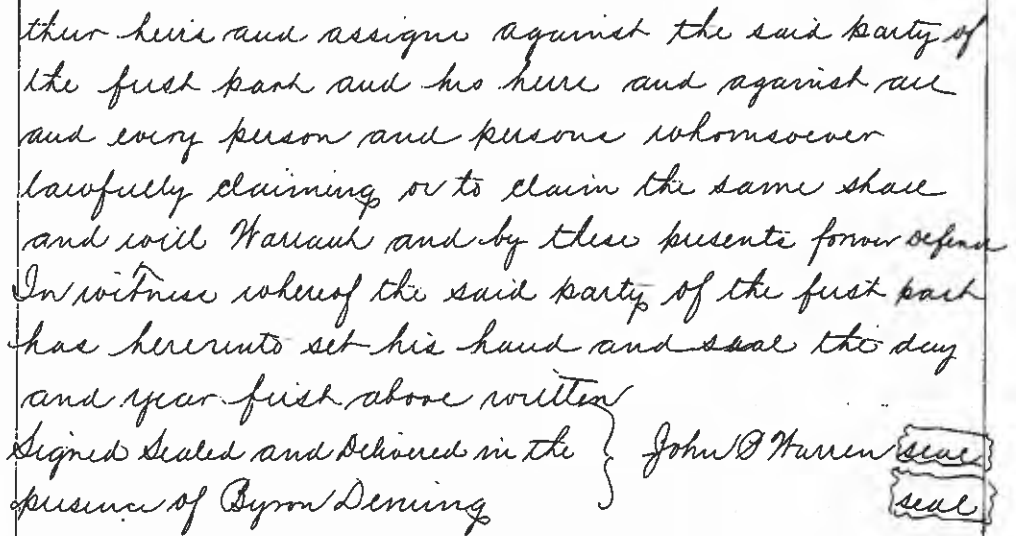 their heirs and assigns against the said party of
the first part and his heirs and against all
and every person and persons whomsoever
lawfully claiming or to claim the same shall
and will Warrant and by these presents forever defend
In witness whereof the said party of the first part
has hereunto set his hand and seal the day
and year first above written
Signed Sealed and Delivered in the } John P Warren seal
presence of Byron Deming seal